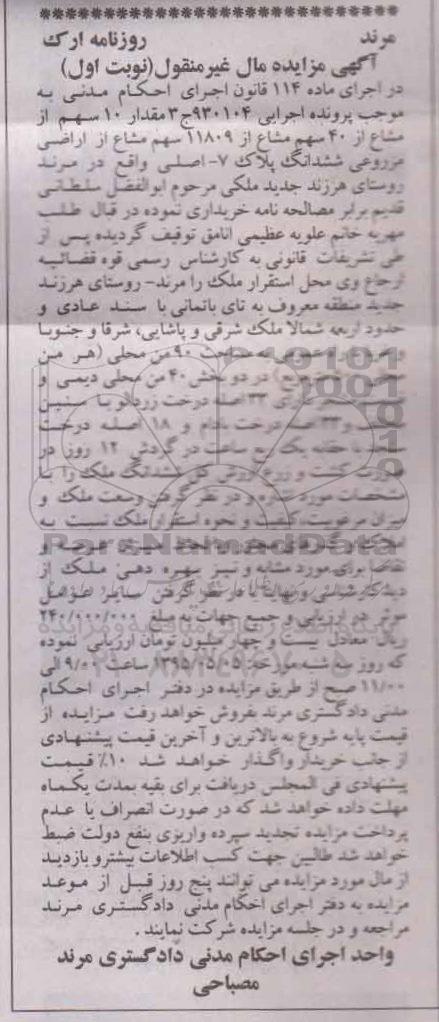 مرند روزنامه ارک
آگهی مزایده مال غیرمنقول(نوبت اول)
در اجرای ماده ۱۱۴ قانون اجرای احکام مدنی به
موجب پرونده اجرایی ۹۳۰۱۰۴ج۳ مقدار ۱۰ سهم از
مشاع از ۴۰ سهم مشاع از ۱۱۸۰۹ سهم مشاع از اراضی
مزروعی ششدانگ پلاک ۷-اصلی واقع در مرند
روستای هرزند جدید ملکی مرحوم ابوالفضل سلطانی
قدیم برابر مصالحه نامه خریداری نموده در قبال طلب
مهریه خانم علویه عظیمی اتامق توقیف گردیده پس از
طی تشریفات قانونی به کارشناس رسمی قوه قضائیه
ارجاع وی محل استقرار ملک را مرند- روستای هرزند
جدید منطقه معروف به تای باتمانی با سند عادی و
حدود اربعه شمالا ملک شرقی و پاشایی، شرقا و جنوبا
مساحت ۹۰ من محلی (هر من
در دو بخش ۴۰ من محلی دیمی و
۳۳ اصله درخت زردآلو با سنین
و ۳۳ اصله درخت بادام و ۱۸ اصله درخت
با حقابه یک ربع ساعت در گردش ۱۲ روز در
صورت کشت و زرع ارزش کل ششدانگ ملک را با
مشخصات مورد اشاره و در نظر گرفتن وسعت ملک و
میزان مرغوبیت، کیفیت و نحوه استقرار ملک نسبت به
عرضه و
تقاضا برای مورد مشابه و نیز بهره دهی ملک از
دیدگاه کارشناسی و نهایتا با در نظر گرفتن سایر عوامل
موثر در ارزیابی و جمیع جهات به مبلغ ۲۴۰/۰۰۰/۰۰۰
ریال معادل بیست و چهار میلیون تومان ارزیابی نموده
که روز سه شنبه مورخه: ۱۳۹۵/۰۵/۰۵ ساعت ۹/۰۰ الی
۱۱/۰۰ صبح از طریق مزایده در دفتر اجرای احکام
مدنی دادگستری مرند بفروش خواهد رفت مزایده از
قیمت پایه شروع به بالاترین و آخرین قیمت پیشنهادی
از جانب خریدار واگذار خواهد شد ۱۰٪ قیمت
پیشنهادی فی المجلس دریافت برای بقیه بمدت یکماه
مهلت داده خواهد شد که در صورت انصراف یا عدم
پرداخت مزایده تجدید سپرده واریزی بنفع دولت ضبط
خواهد شد طالبین جهت کسب اطلاعات بیشتر و بازدید
از مال مورد مزایده می توانند پنج روز قبل از موعد
مزایده به دفتر اجرای احکام مدنی دادگستری مرند
مراجعه و در جلسه مزایده شرکت نمایند .
واحد اجرای احکام مدنی دادگستری مرند
مصباحی
ParsNamadData